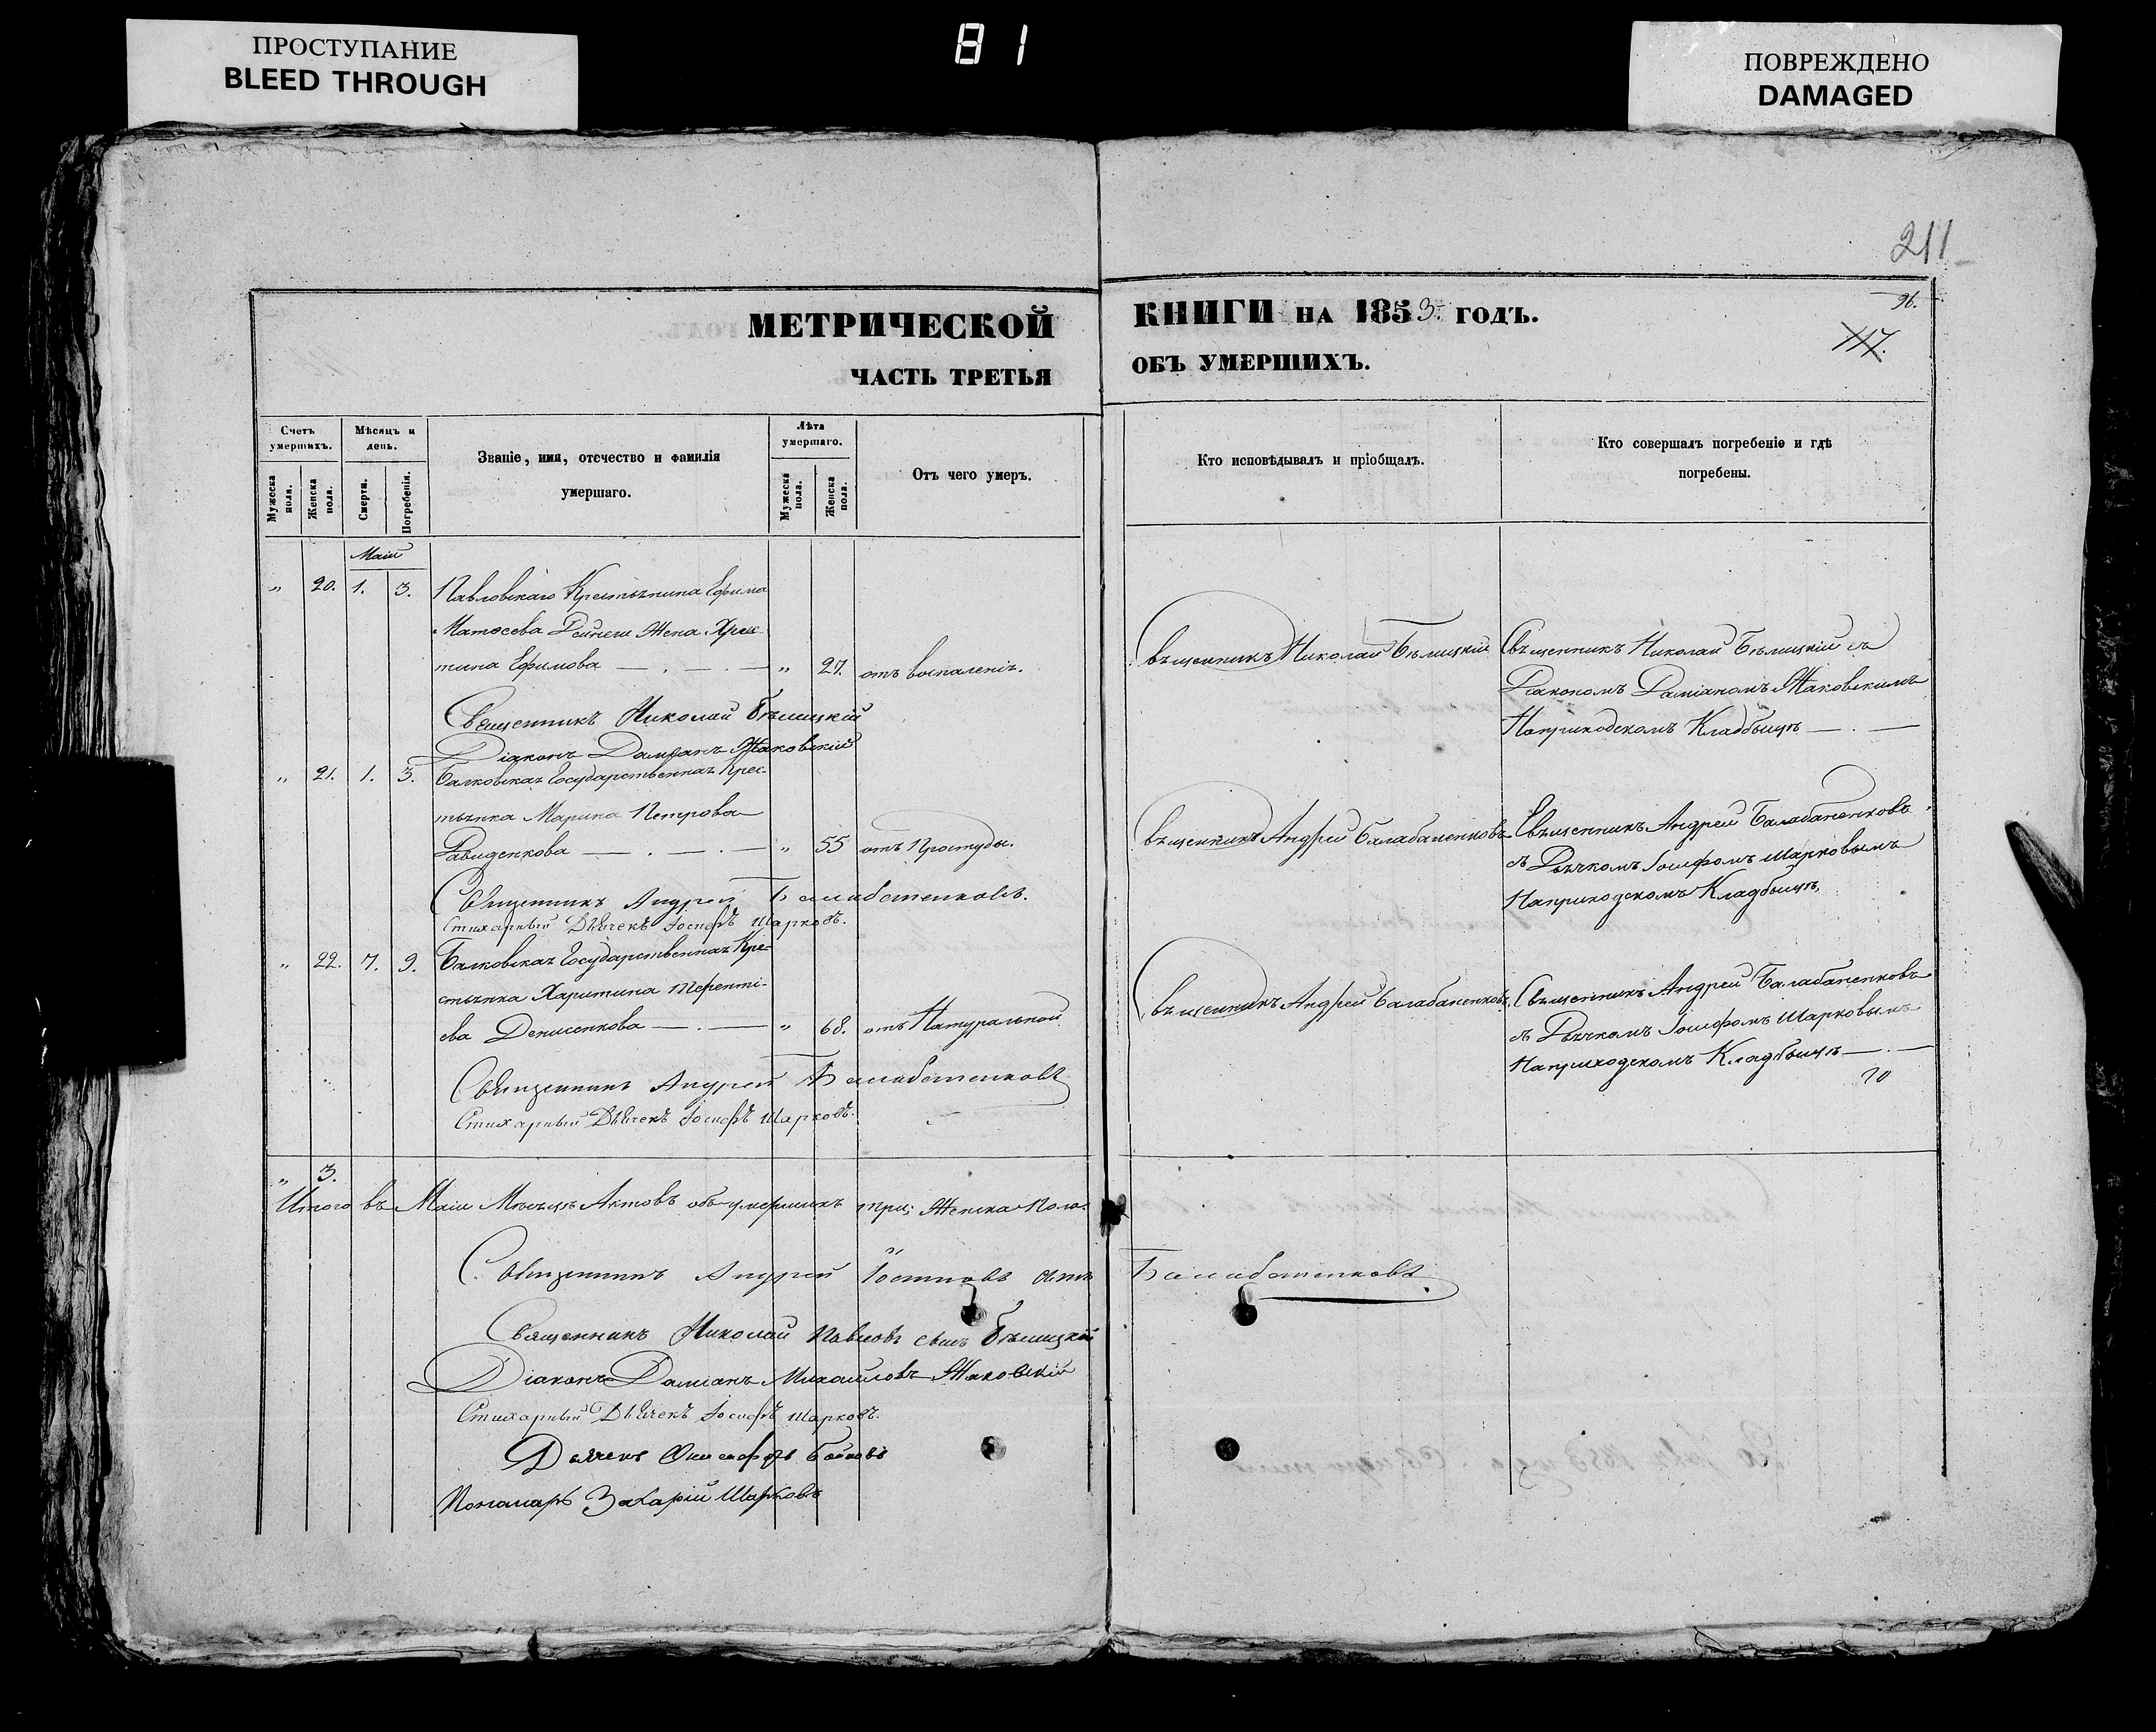 ПРОСТУПАНИЕ
BLEED THROUGH
81
ПОВРЕЖДЕНО
DAMAGED
211
96.
117.
МЕТРИЧЕСКОЙ КНИГИ НА 1853 ГОДЪ.
ЧАСТЬ ТРЕТЬЯ ОБЪ УМЕРШИХЪ.
Счетъ умершихъ.
Мужеска пола.
Женска пола.
Мѣсяцъ и день.
Смерти.
Погребенія.
Званіе, имя, отечество и фамилія
умершаго.
Лѣта умершаго.
Мужеска пола.
Женска пола.
Отъ чего умеръ.
Кто исповѣдывалъ и пріобщалъ.
Кто совершалъ погребеніе и гдѣ
погребены.
Маіи
" 20. 1. 3. Павловскаго Крестьянина Ефима
Матѳеева Жена Хрис-
тина Ефимова " 27. отъ воспаленія.
Священникъ Николай Бѣлицкій
Священникъ Николай Бѣлицкій съ
Діакономъ Даміаномъ Жаковскимъ
Наприходскомъ Кладбищѣ
Священникъ Николай Бѣлицкій
Діаконъ Даміанъ Жаковскій
" 21. 1. 3. Балковская Государственная Крес-
тьянка Марина Петрова
Давиденкова " 55 отъ Простуды.
Священникъ Андрей Балабаненковъ
Священникъ Андрей Балабаненковъ
съ Дьячкомъ Іосифомъ Шарковымъ
Наприходскомъ Кладбищѣ
Священникъ Андрей Балабаненковъ.
Стихарный Дьячекъ Іосифъ Шарковъ.
" 22. 7. 9. Балковская Государственная Кре-
стьянка Харитина Теренті-
ева Денисенкова " 68. отъ Натуральной
Священникъ Андрей Балабаненковъ
Священникъ Андрей Балабаненковъ
съ Дьячкомъ Іосифомъ Шарковымъ
Наприходскомъ Кладбищѣ
Священникъ Андрей Балабаненковъ
Стихарный Дьячекъ Іосифъ Шарковъ.
" 3.
Итого въ Маіи Мѣсяцѣ Актовъ объ умершихъ три; Женска Пола.
Священникъ Андрей Балабаненковъ
Священникъ Николай Павловъ сынъ Бѣлицкій
Діаконъ Даміанъ Михаиловъ Жаковскій
Стихарный Дьячекъ Іосифъ Шарковъ.
Дьячекъ
Пономарь Захарій Шарковъ